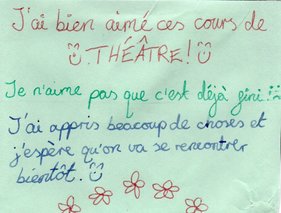 J'ai bien aimé ces cours de
THÉÂTRE!
Je n'aime pas que c'est déjà fini!
J'ai appris beacoup de choses et
j'espère qu'on va se rencontrer
bientôt.